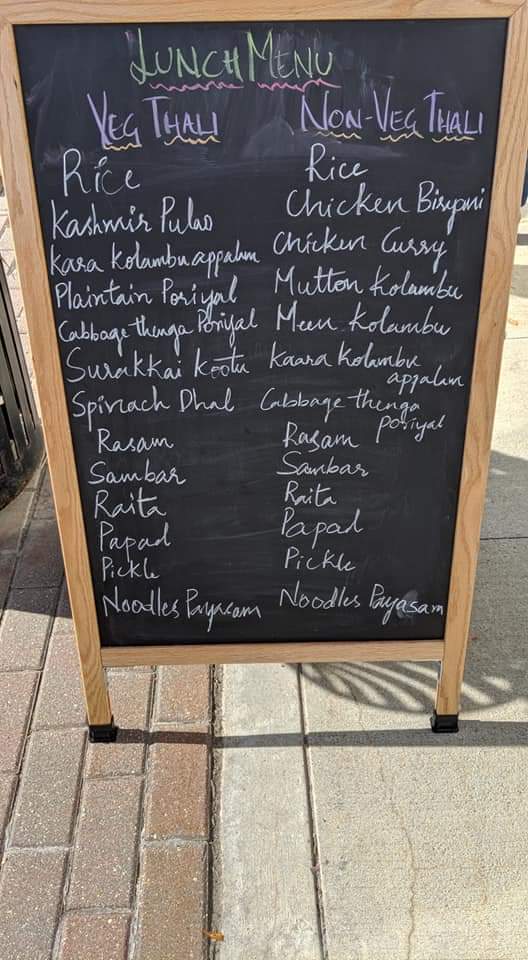 Lunch Menu
Veg Thali
Rice
Kashmir Pulao
Kara Kolambu appalam
Plaintain Poriyal
Cabbage thenga Poriyal
Surakkai Kootu
Spinach Dhal
Rasam
Sambar
Raita
Papad
Pickle
Noodles Payasam
Non-Veg Thali
Rice
Chicken Biryani
Chicken Curry
Mutton Kolambu
Meen Kolambu
Kaara Kolambu
appalam
Cabbage thenga
poriyal
Rasam
Sambar
Raita
Papad
Pickle
Noodles Payasam